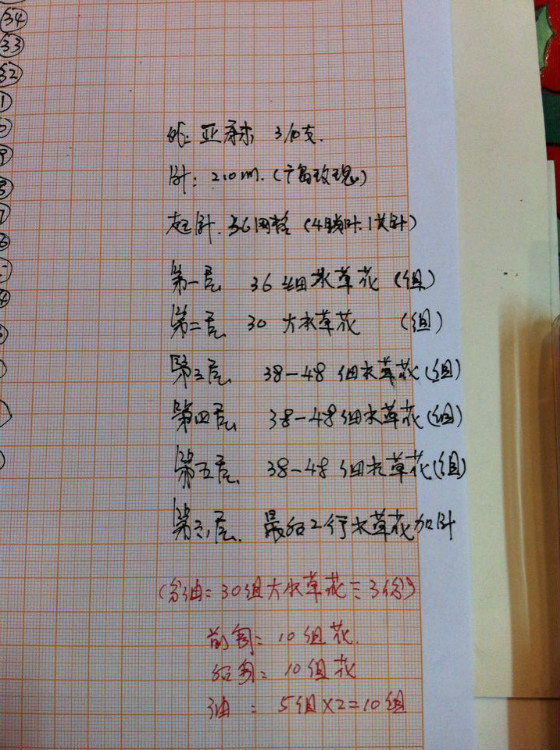 34
33
32
线: 亚麻 3/0支.
针: 2.0m. (广昌玫瑰)
起针. 36网格 (4锁针.1长针)
第一层 36 组水草花 (组)
第二层 30 大水草花 (组)
第三层 38-48 组水草花 (组)
第四层 38-48 组水草花 (组)
第五层 38-48 组水草花 (组)
第六层. 最后2行水草花加针
(分油=30组大水草花÷3份)
前图= 10组花.
后图= 10组花
油: 5组×2=10组